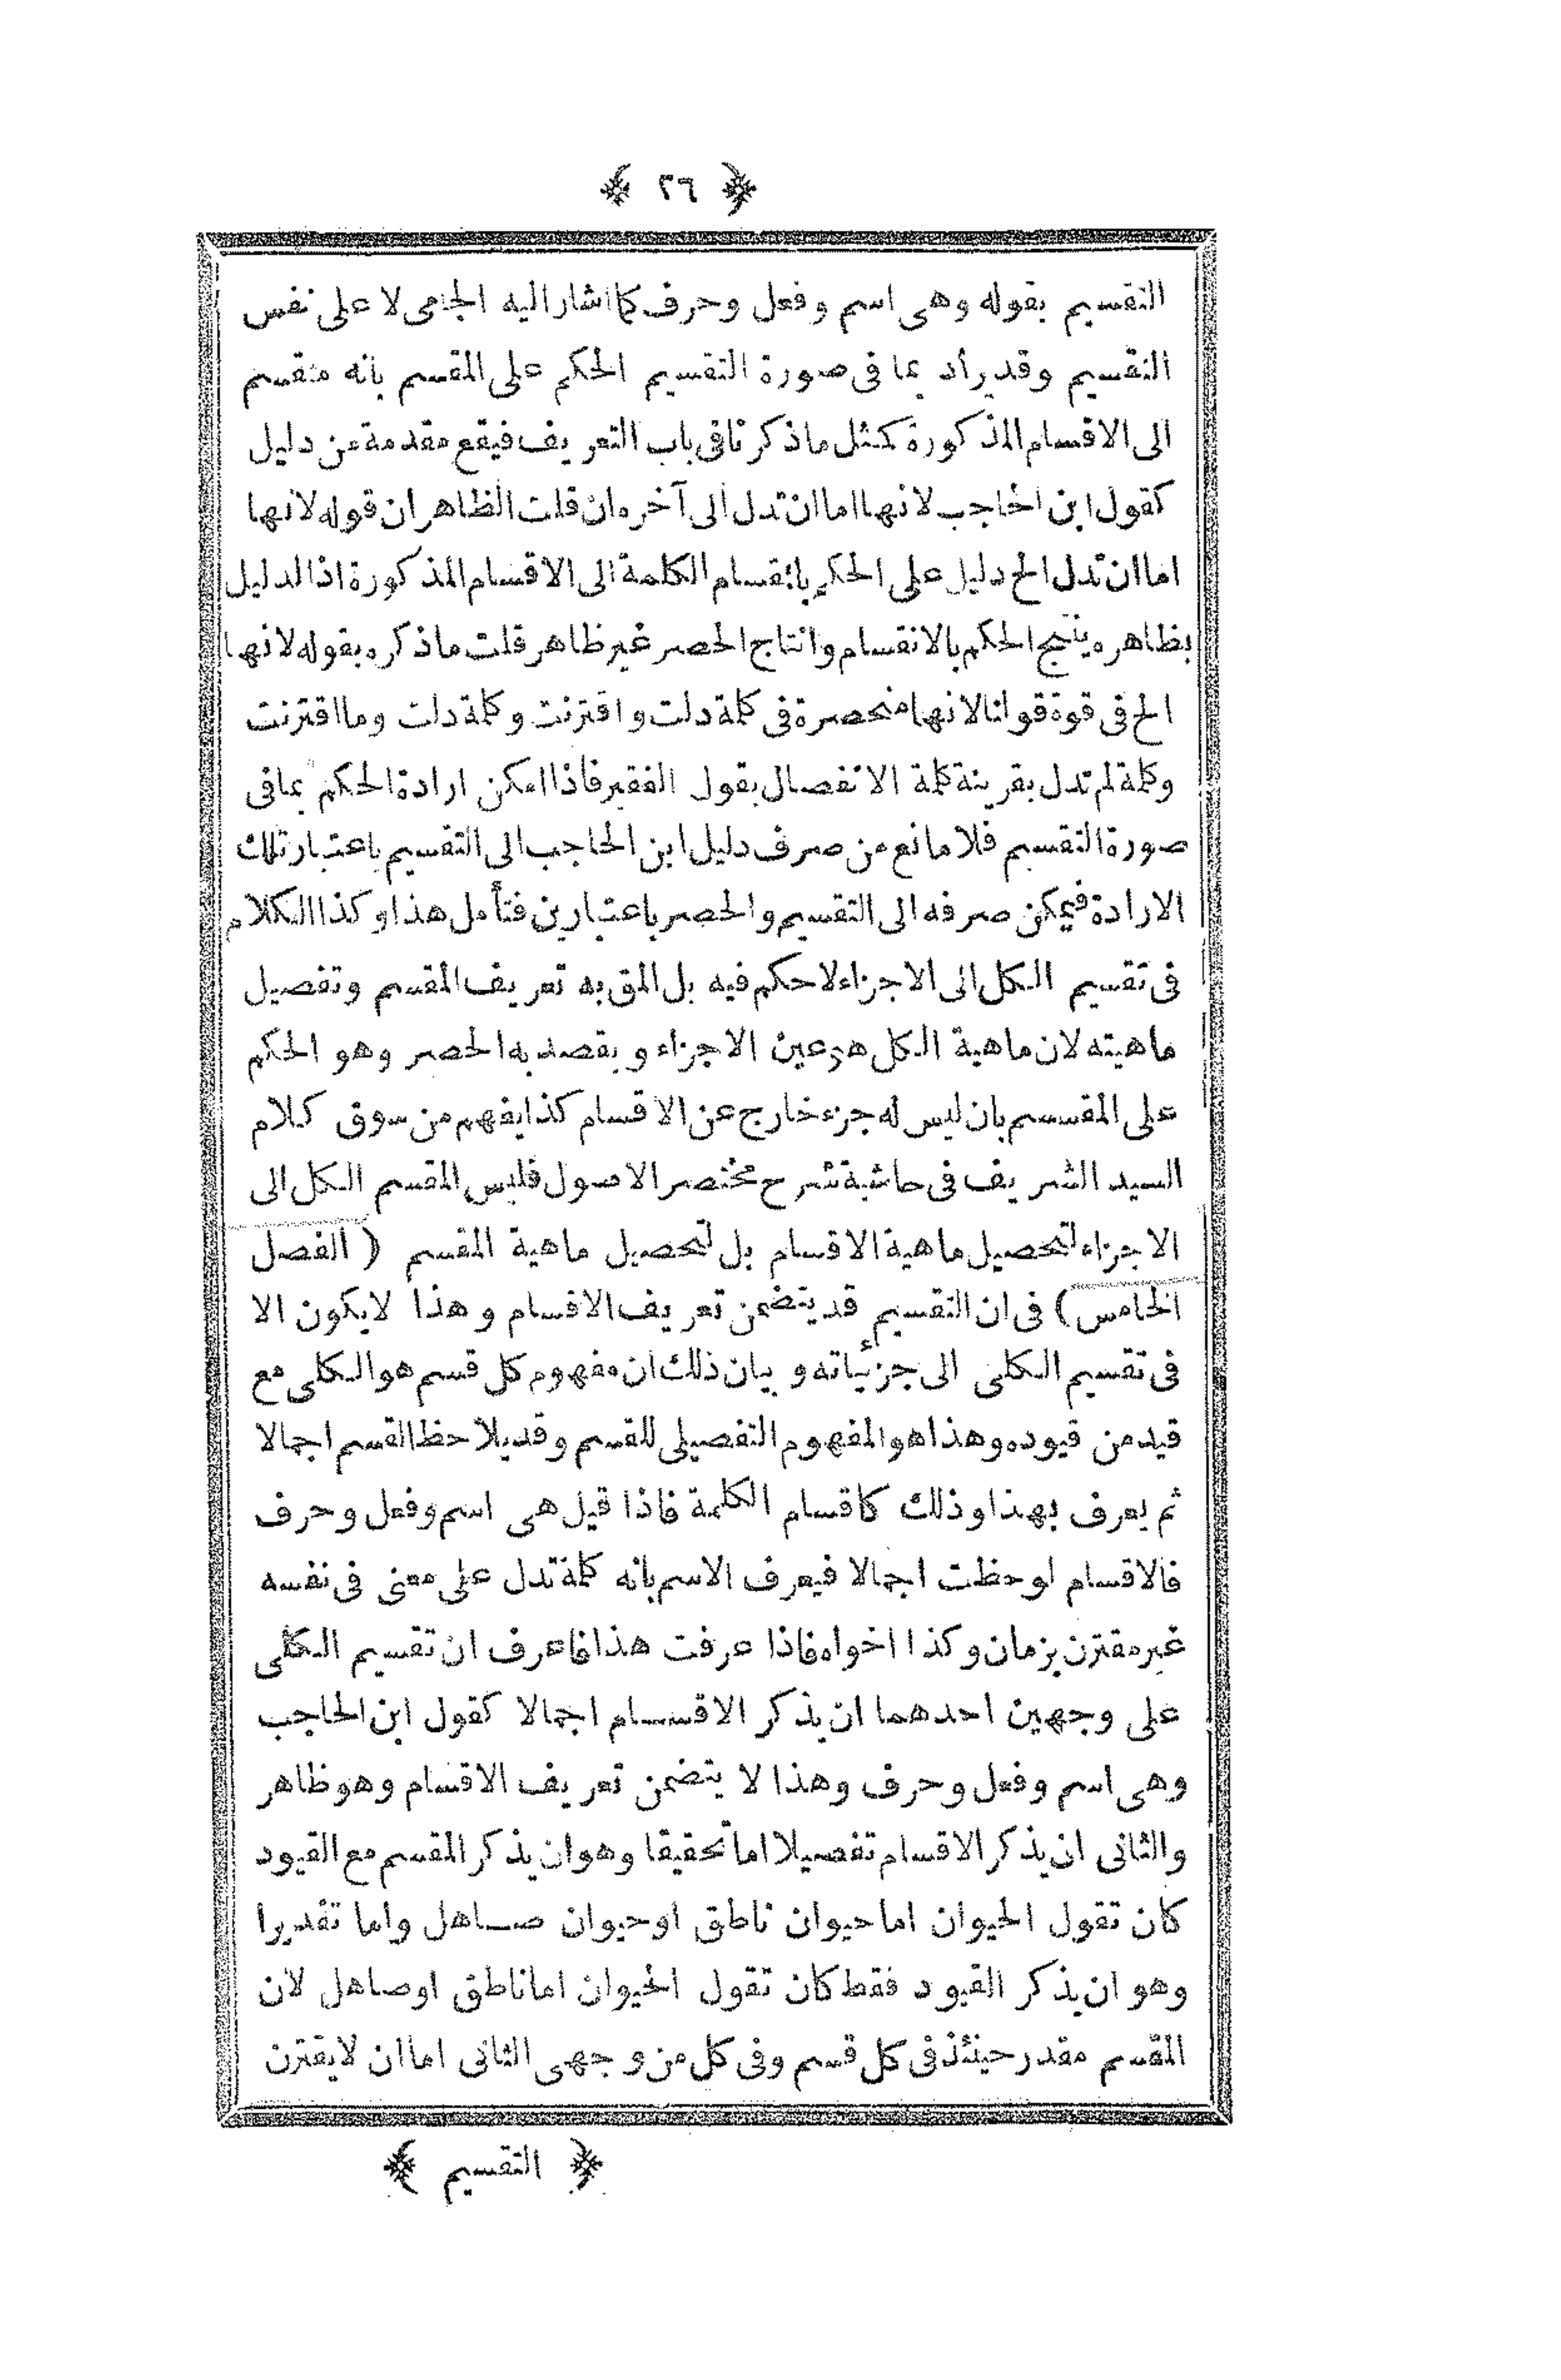 ﴿ ٢٦ ﴾
التقسيم بقوله وهى اسم وفعل وحرف كما اشار اليه الجامى لا على نفس
التقسيم وقد يراد بما فى صورة التقسيم الحكم على المقسم بانه منقسم
الى الاقسام المذكورة كمثل ما ذكرنا فى باب التعريف فيقع مقدمة من دليل
كقول ابن الحاجب لانها اما ان تدل الى آخره ان قلت الظاهر ان قوله لانها
اما ان تدل الخ دليل على الحكم بانقسام الكلمة الى الاقسام المذكورة اذ الدليل
بظاهره ينتج الحكم بالانقسام وانتاج الحصر غير ظاهر قلت ما ذكره بقوله لانها
الخ فى قوة قولنا لانها منحصرة فى كلمة دلت واقترنت وكلمة دلت وما اقترنت
وكلمة لم تدل بقرينة كلمة الانفصال يقول الفقير فاذا امكن ارادة الحكم بما فى
صورة التقسيم فلا مانع من صرف دليل ابن الحاجب الى التقسيم باعتبار تلك
الارادة فيمكن صرفه الى التقسيم والحصر باعتبارين فتأمل هذا وكذا الكلام
فى تقسيم الكل الى الاجزاء لا حكم فيه بل المق به تعريف المقسم وتفصيل
ماهيته لان ماهية الكل هى عين الاجزاء ويقصد به الحصر وهو الحكم
على المقسم بان ليس له جزء خارج عن الاقسام كذا يفهم من سوق كلام
السيد الشريف فى حاشية شرح مختصر الاصول فليس المقسم الكل الى
الاجزاء لتحصيل ماهية الاقسام بل لتحصيل ماهية المقسم ( الفصل
الخامس ) فى ان التقسيم قد يتضمن تعريف الاقسام وهذا لا يكون الا
فى تقسيم الكلى الى جزئياته وبيان ذلك ان مفهوم كل قسم هو الكلى مع
قيد من قيوده وهذا هو المفهوم التفصيلى للقسم وقد يلاحظ القسم اجمالا
ثم يعرف بهذا وذلك كاقسام الكلمة فاذا قيل هى اسم وفعل وحرف
فالاقسام لوحظت اجمالا فيعرف الاسم بانه كلمة تدل على معنى فى نفسه
غير مقترن بزمان وكذا اخواه فاذا عرفت هذا فاعرف ان تقسيم الكلى
على وجهين احدهما ان يذكر الاقسام اجمالا كقول ابن الحاجب
وهى اسم وفعل وحرف وهذا لا يتضمن تعريف الاقسام وهو ظاهر
والثانى ان يذكر الاقسام تفصيلا اما تحقيقا وهو ان يذكر المقسم مع القيود
كان تقول الحيوان اما حيوان ناطق او حيوان صاهل واما تقديرا
وهو ان يذكر القيود فقط كان تقول الحيوان اما ناطق او صاهل لان
المقسم مقدر حينئذ فى كل قسم وفى كل من وجهى الثانى اما ان لا يقترن
﴿ التقسيم ﴾